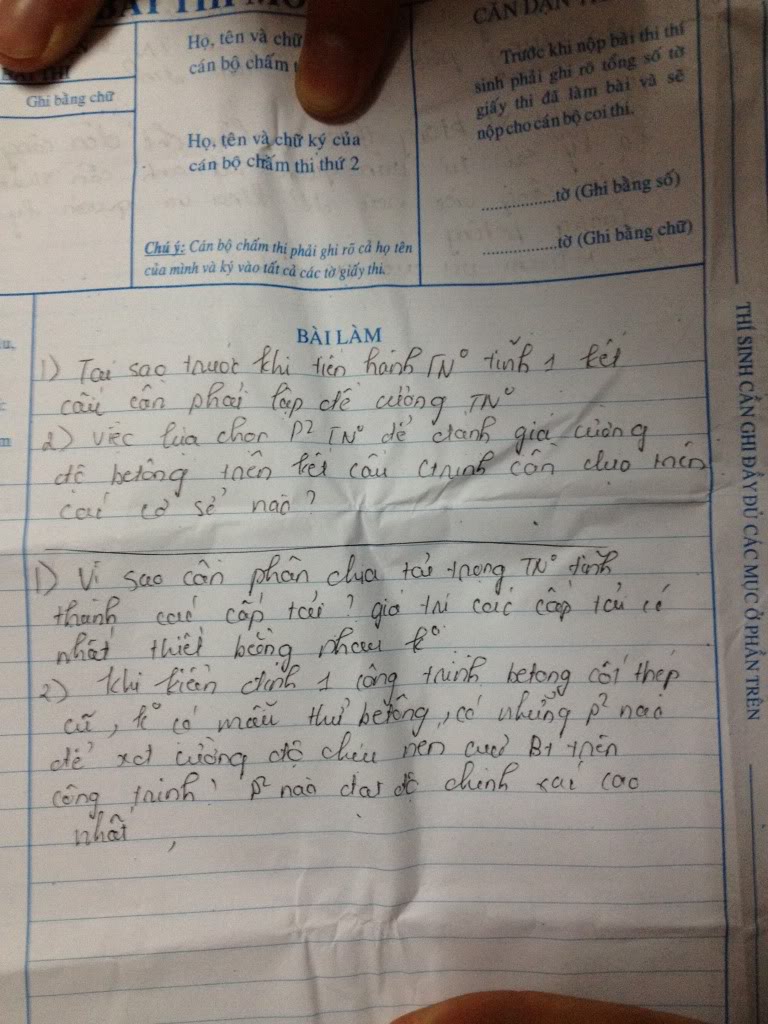 BÀI THI MÔ
CĂN DẶN
BÀI THI
Ghi bằng chữ
Họ, tên và chữ
cán bộ chấm t
Họ, tên và chữ ký của
cán bộ chấm thi thứ 2
Chú ý: Cán bộ chấm thi phải ghi rõ cả họ tên
của mình và ký vào tất cả các tờ giấy thi.
Trước khi nộp bài thi thí
sinh phải ghi rõ tổng số tờ
giấy thi đã làm bài và sẽ
nộp cho cán bộ coi thi.
................tờ (Ghi bằng số)
................tờ (Ghi bằng chữ)
BÀI LÀM
1) Tại sao trước khi tiến hành TN° tĩnh 1 kết
cấu cần phải lập đề cương TN°
2) Việc lựa chọn P² TN° để đánh giá cường
độ bêtông trên kết cấu ctrình cần dựa trên
các cơ sở nào?
1) Vì sao cần phân chia tải trọng TN° tĩnh
thành các cấp tải? giá trị các cấp tải có
nhất thiết bằng nhau k°
2) Khi kiểm định 1 công trình betong cốt thép
cũ, k° có mẫu thử bêtông, có những p² nào
để xđ cường độ chịu nén của BT trên
công trình, p² nào đạt độ chính xác cao
nhất,
THÍ SINH CẦN GHI ĐẦY ĐỦ CÁC MỤC Ở PHẦN TRÊN